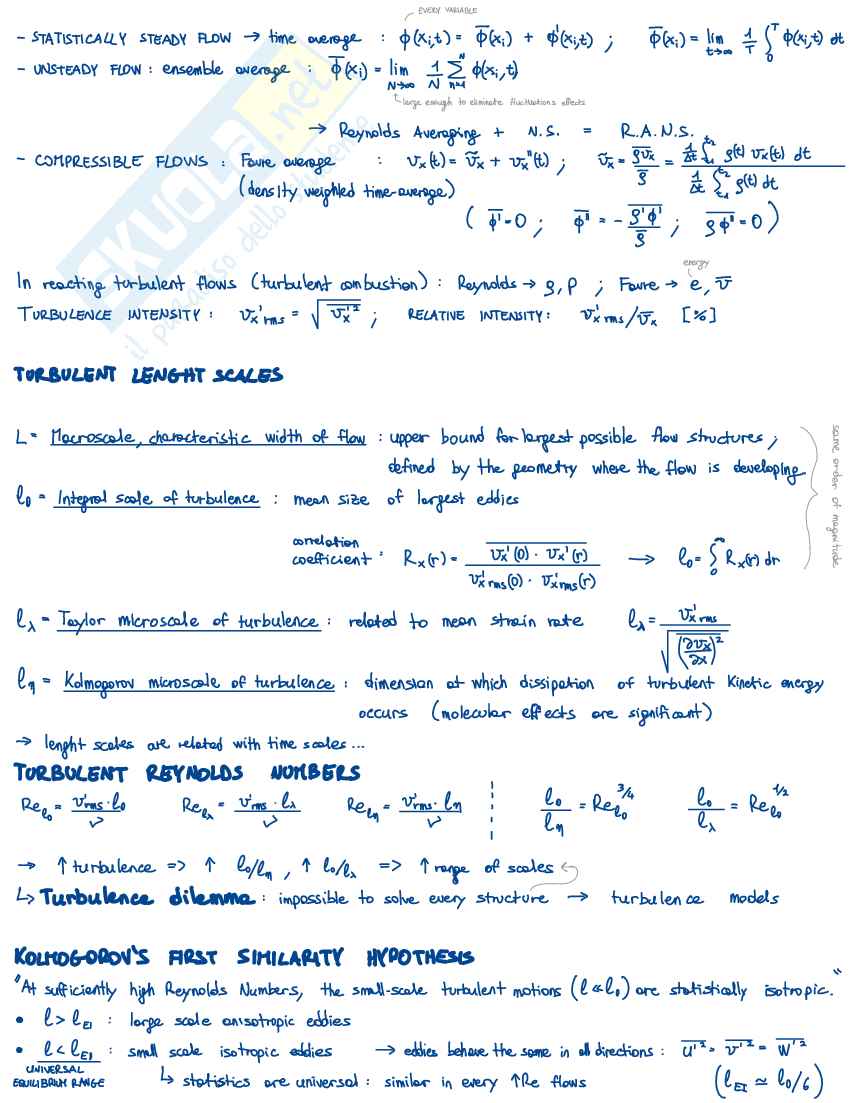 EVERY VARIABLE
- STATISTICALLY STEADY FLOW → time average : ϕ(xᵢ,t) = ϕ̅(xᵢ) + ϕ'(xᵢ,t) ; ϕ̅(xᵢ) = lim t→∞ 1/T ∫₀ᵀ ϕ(xᵢ,t) dt
- UNSTEADY FLOW : ensemble average : ϕ̅(xᵢ) = lim N→∞ 1/N Σ n=1 N ϕ(xᵢ,t)
large enough to eliminate fluctuations effects
→ Reynolds Averaging + N.S. = R.A.N.S.
- COMPRESSIBLE FLOWS : Favre average : vₓ(t) = ṽₓ + vₓ''(t) ; ṽₓ = \overline{ρvₓ} / ρ̅ = (1/Δt ∫_{t₁}^{t₂} ρ(t) vₓ(t) dt) / (1/Δt ∫_{t₁}^{t₂} ρ(t) dt)
(density weighted time-average)
( \overline{ϕ'} = 0 ; \overline{ϕ''} = - \overline{ρ'ϕ'} / ρ̅ ; \overline{ρϕ''} = 0 )
energy
In reacting turbulent flows (turbulent combustion) : Reynolds → ρ, p ; Favre → e, v̅
TURBULENCE INTENSITY : vₓ'rms = √\overline{vₓ'²} ; RELATIVE INTENSITY : vₓ'rms / v̅ₓ [%]
SKUOLA.net
il paradiso dello studente
TURBULENT LENGHT SCALES
L = Macroscale, characteristic width of flow : upper bound for largest possible flow structures ;
defined by the geometry where the flow is developing
same order of magnitude
l₀ = Integral scale of turbulence : mean size of largest eddies
correlation
coefficient : Rₓ(r) = \overline{vₓ'(0) · vₓ'(r)} / (vₓ'rms(0) · vₓ'rms(r)) → l₀ = ∫₀^∞ Rₓ(r) dr
l_λ = Taylor microscale of turbulence : related to mean strain rate l_λ = vₓ'rms / √\overline{(∂vₓ/∂x)²}
l_η = Kolmogorov microscale of turbulence : dimension at which dissipation of turbulent kinetic energy
occurs (molecular effects are significant)
→ lenght scales are related with time scales...
TURBULENT REYNOLDS NUMBERS
Re_{l₀} = v'rms · l₀ / ν Re_{lλ} = v'rms · l_λ / ν Re_{lη} = v'rms · l_η / ν l₀/l_η = Re_{l₀}^{3/4} l₀/l_λ = Re_{l₀}^{1/2}
→ ↑ turbulence => ↑ l₀/l_η , ↑ l₀/l_λ => ↑ range of scales
↳ Turbulence dilemma : impossible to solve every structure → turbulence models
KOLMOGOROV'S FIRST SIMILARITY HYPOTHESIS
"At sufficiently high Reynolds Numbers, the small-scale turbulent motions (l ≪ l₀) are statistically isotropic."
• l > l_EI : large scale anisotropic eddies
• l < l_EI : small scale isotropic eddies → eddies behave the same in all directions : \overline{u'²} = \overline{v'²} = \overline{w'²}
UNIVERSAL
EQUILIBRIUM RANGE
↳ statistics are universal : similar in every ↑Re flows (l_EI ≃ l₀/6)